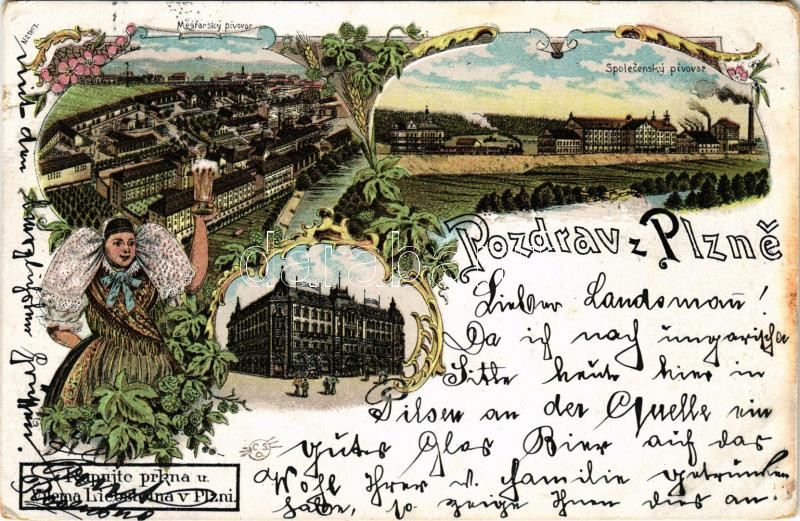 Měšťanský pivovar
Společenský pivovar.
Pozdrav z Plzně
Lieber Landsmann!
Da ich nach ungarischer
Sitte heute hier in
Pilsen an der Quelle ein
gutes Glas Bier auf das
Wohl Ihrer v. Familie getrunken
habe, so zeige Ihnen dies an.
Mit den
Grüßen.
Kupujte prkna u
Viléma Liebsteina v Plzni.
C.S.
D.
darabanth